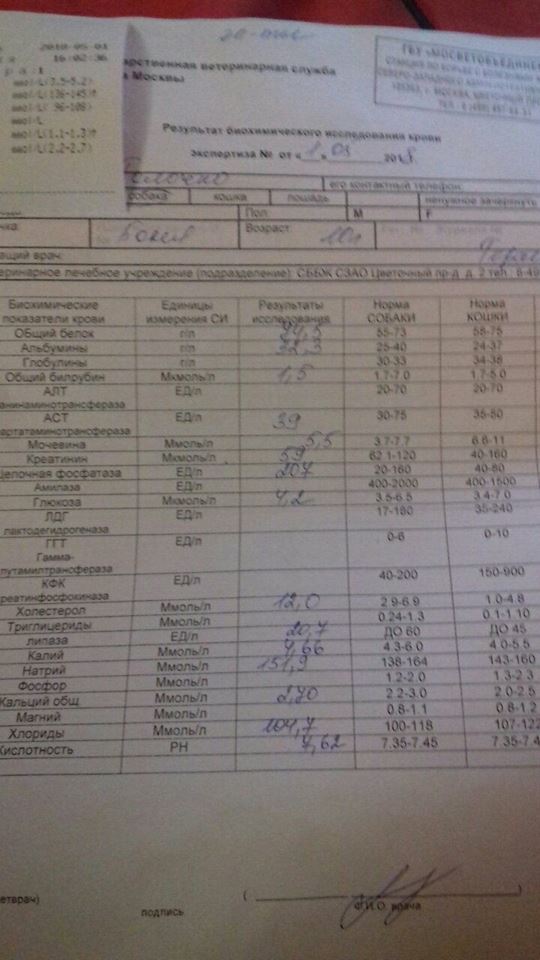 2018-05-01
16:02:36
mmol/L(3.5-5.2)
mmol/L(136-145)↑
mmol/L( 96-108)
mmol/L
mmol/L(1.1-1.3)↑
mmol/L(2.2-2.7)
дарственная ветеринарная служба
Москвы
ГБУ «МОСВЕТОБЪЕДИНЕ
СТАНЦИЯ ПО БОРЬБЕ С БОЛЕЗНЯМИ
СЕВЕРО-ЗАПАДНОГО АДМИНИСТРАТИВ
г. МОСКВА, ЦВЕТОЧНЫЙ ПР
Результат биохимического исследования крови
экспертиза № от «1» 05 2018
его контактный телефон:
собака кошка лошадь ненужное зачеркнуть
чка: Пол: M F
Возраст: 10л
ащий врач:
еринарное лечебное учреждение (подразделение) СББЖ СЗАО Цветочный пр-д, д. 2 тел.: 8-49
Биохимические показатели крови Единицы измерения СИ Результаты исследования Норма СОБАКИ Норма КОШКИ
Общий белок г/л 94,5 55-73 58-75
Альбумины г/л 32,3 25-40 24-37
Глобулины г/л 30-33 34-38
Общий билрубин Мкмоль/л 1,5 1.7-7.0 1.7-5.0
АЛТ ЕД/л 20-70 20-70
анинаминотрансфераза
АСТ ЕД/л 39 30-75 35-80
партатаминотрансфераза
Мочевина Ммоль/л 5,5 3.7-7.7 6.6-11
Креатинин Мкмоль/л 59 62.1-120 40-160
Щелочная фосфатаза ЕД/л 207 20-160 40-80
Амилаза ЕД/л 400-2000 400-1500
Глюкоза Мкмоль/л 4,2 3.5-6.5 3.4-7.0
ЛДГ ЕД/л 17-180 35-240
лактодегидрогеназа
ГГТ ЕД/л 0-6 0-10
Гамма-
лутамилтрансфераза
КФК ЕД/л 40-200 150-900
реатинфосфокиназа
Холестерол Ммоль/л 12,0 2.9-6.9 1.0-4.8
Триглицериды Ммоль/л 0.24-1.3 0.1-1.10
липаза ЕД/л 20,7 ДО 60 ДО 45
Калий Ммоль/л 4,66 4.3-6.0 4.0-5.5
Натрий Ммоль/л 151,9 138-164 143-160
Фосфор Ммоль/л 1.2-2.0 1.3-2.3
Кальций общ. Ммоль/л 2,70 2.2-3.0 2.0-2.5
Магний Ммоль/л 0.8-1.1 0.8-1.2
Хлориды Ммоль/л 104,7 100-118 107-122
Кислотность PH 7,62 7.35-7.45 7.35-7.4
етврач)
подпись
( )
Ф.И.О. врача